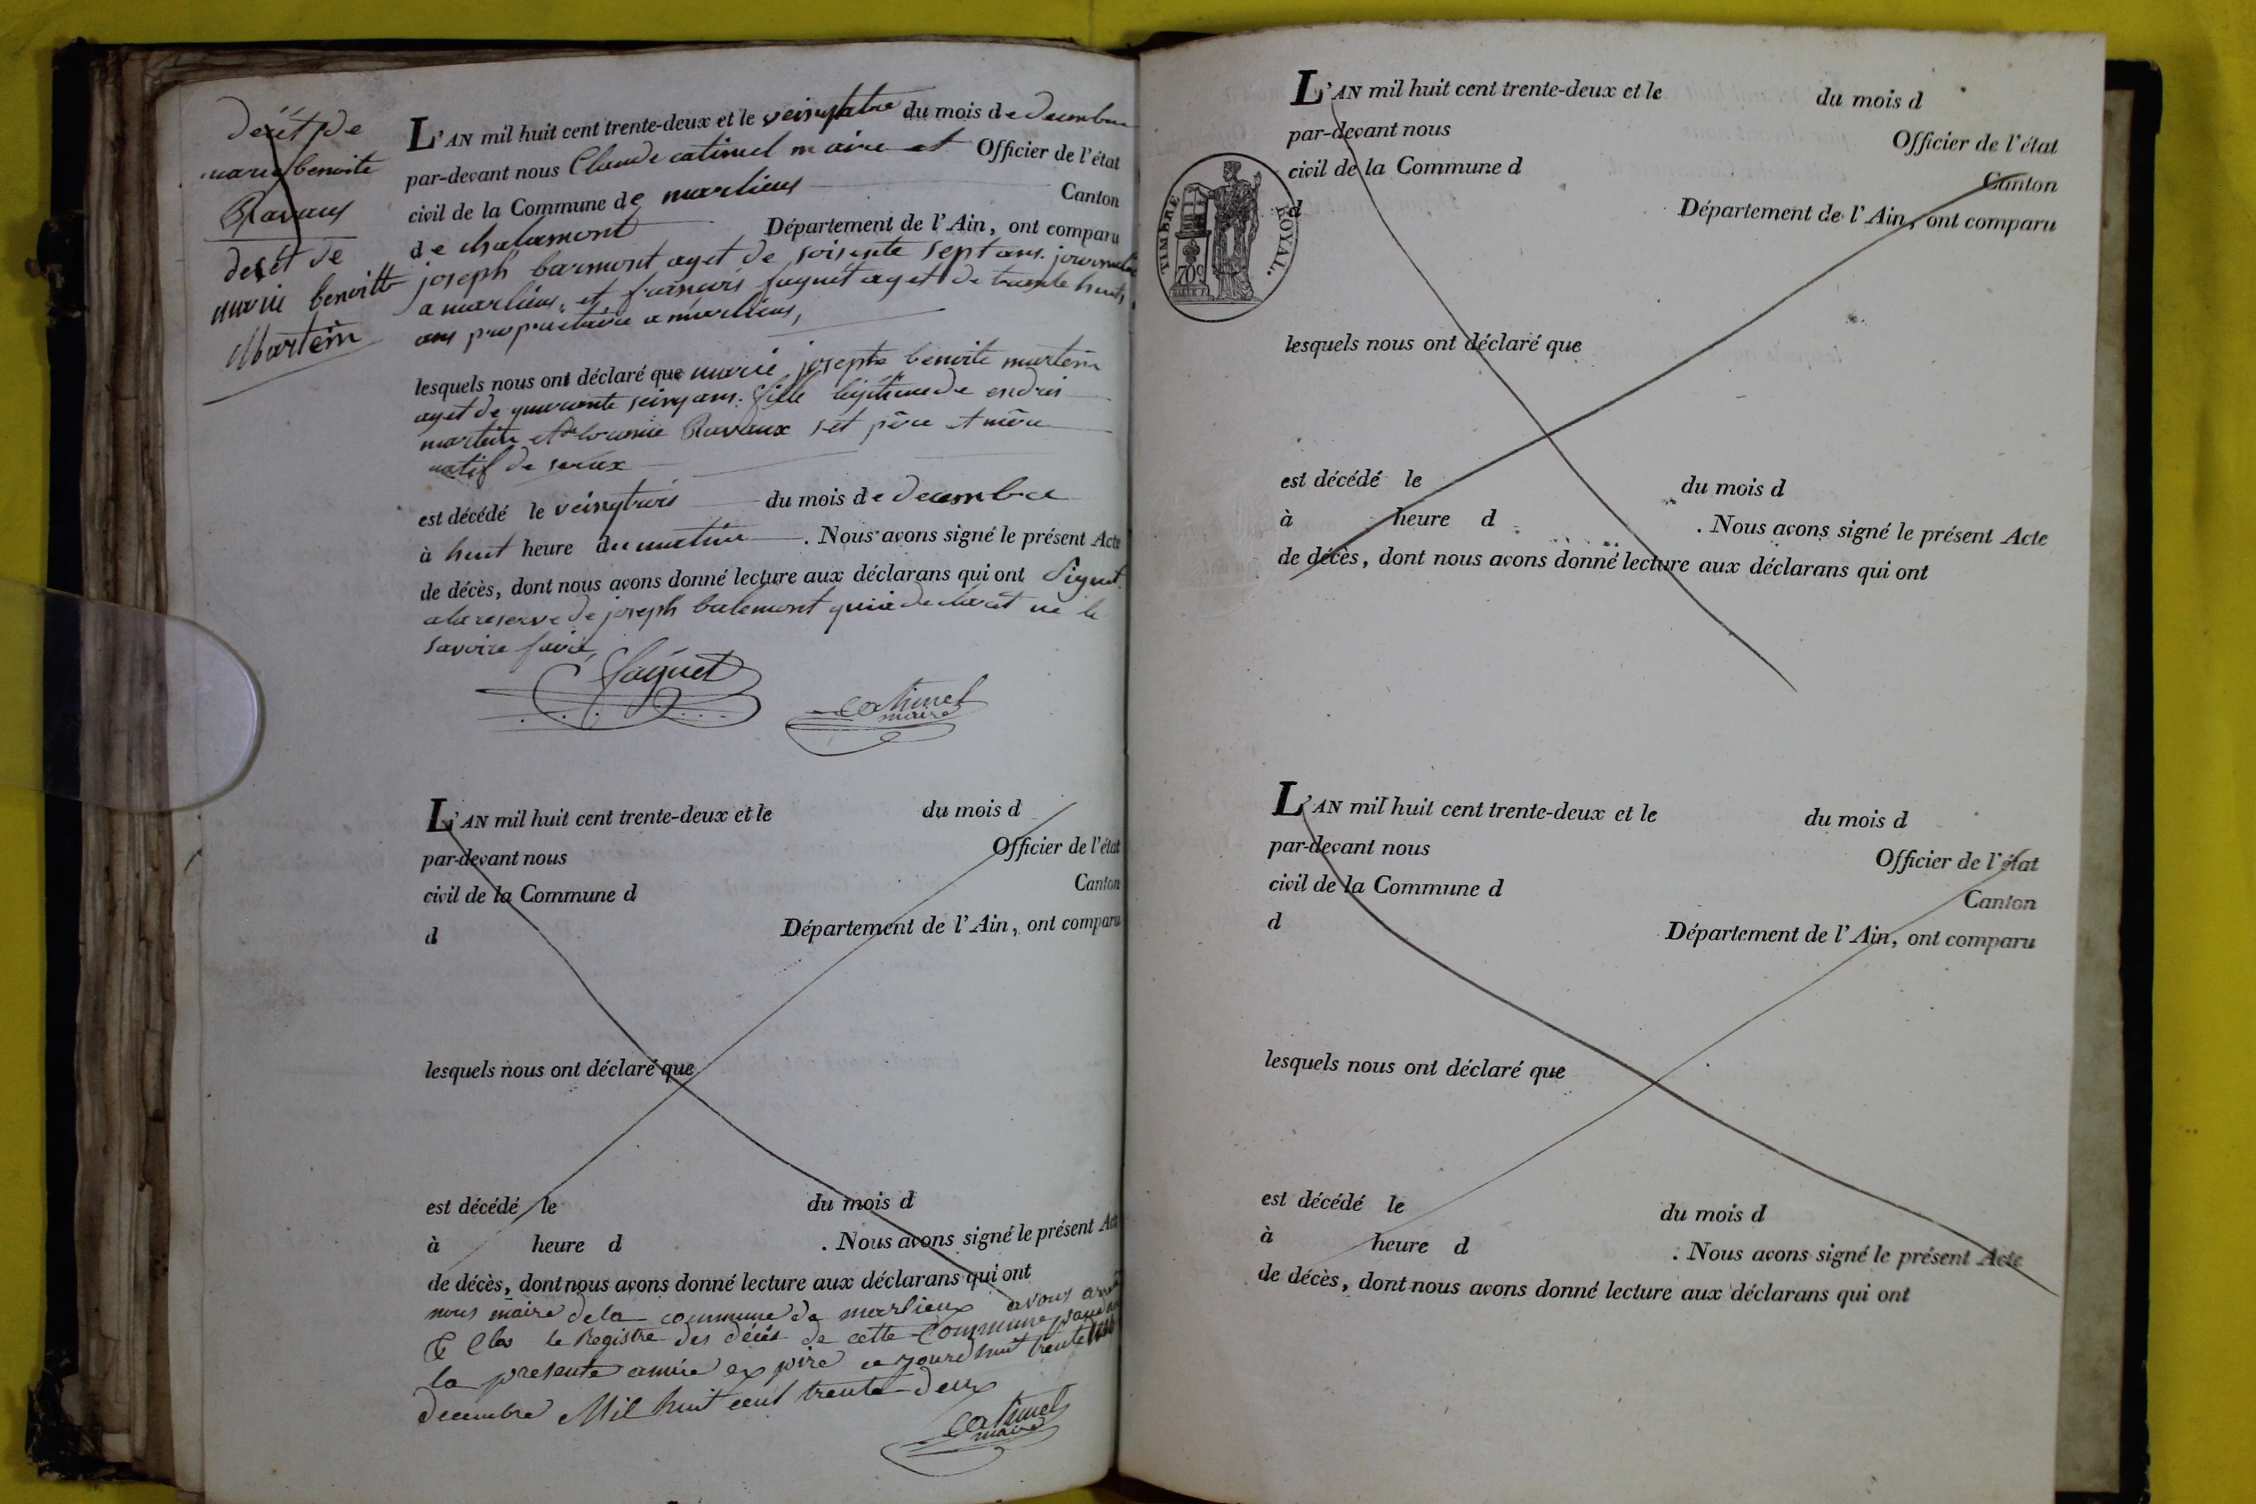 decét de
marie benoite
Ravaux
decét de
marie benoitte
Martein
L'AN mil huit cent trente-deux et le veinqtatre du mois de decembre
par-devant nous Claude catimel maire et Officier de l'état
civil de la Commune de marlieus Canton
de chalamont Département de l'Ain, ont comparu
joseph barmont aget de soisente sept ans. journalie
a marlieus, et francois faguet aget de trante huits
ans propriétaire a marlieus,
lesquels nous ont déclaré que marie josepte benoite martein
aget de quarante seinq ans. fille legitime de endrei
martein et de Ravaux set père et mère
natif de
est décédé le veingtrois du mois de decembre
à huit heure du matin . Nous avons signé le présent Acte
de décès, dont nous avons donné lecture aux déclarans qui ont Signet.
a la reserve de joseph balemont qui a declarét ne le
savoire faire,
faguet
Catimel
maire
L'AN mil huit cent trente-deux et le du mois d
par-devant nous Officier de l'état
civil de la Commune d Canton
d Département de l'Ain, ont comparu
lesquels nous ont déclaré que
est décédé le du mois d
à heure d . Nous avons signé le présent Acte
de décès, dont nous avons donné lecture aux déclarans qui ont
nous maire de la commune de marlieux avons
& Clos le Registre des décés de cette Commune
la presente année expire ce jourd huit trente
decembre Mil huit cent trente deux
Catimel
maire
L'AN mil huit cent trente-deux et le du mois d
par-devant nous Officier de l'état
civil de la Commune d Canton
d Département de l'Ain, ont comparu
TIMBRE ROYAL.
70c
lesquels nous ont déclaré que
est décédé le du mois d
à heure d . Nous avons signé le présent Acte
de décès, dont nous avons donné lecture aux déclarans qui ont
L'AN mil huit cent trente-deux et le du mois d
par-devant nous Officier de l'état
civil de la Commune d Canton
d Département de l'Ain, ont comparu
lesquels nous ont déclaré que
est décédé le du mois d
à heure d . Nous avons signé le présent Acte
de décès, dont nous avons donné lecture aux déclarans qui ont